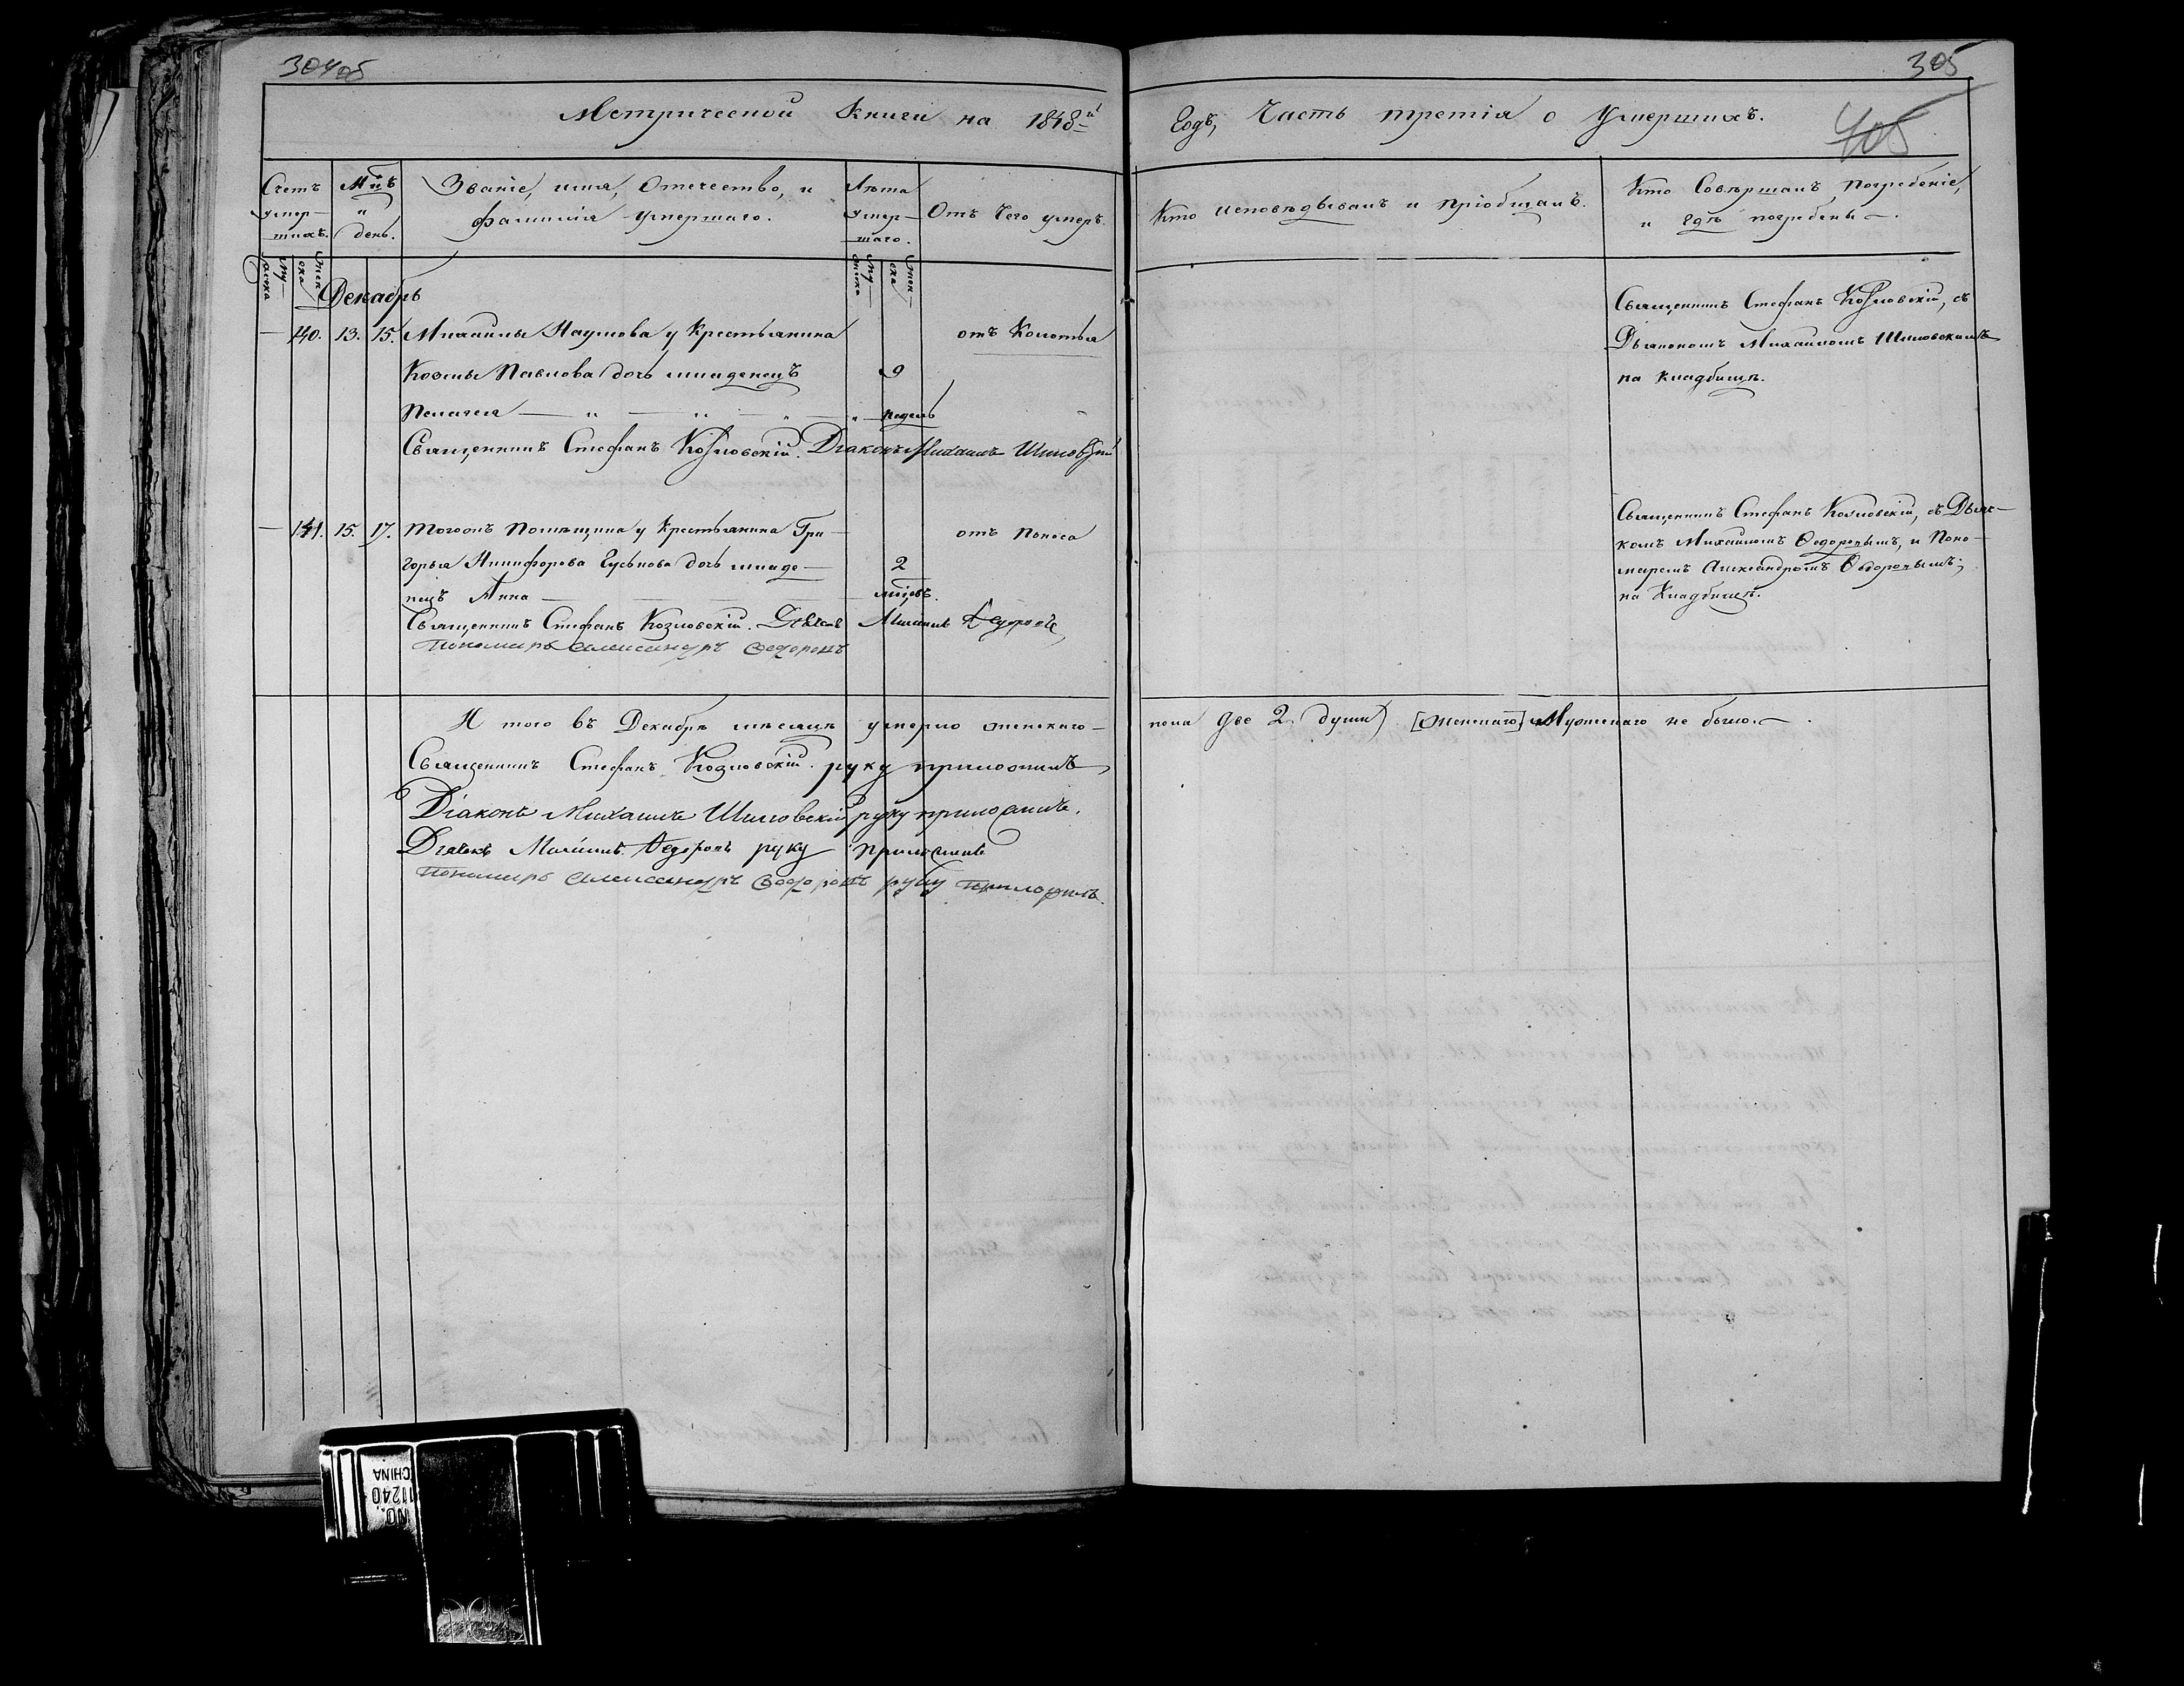 304 об
305
405
Метрической Книги на 1848й
Годъ, Часть третія о Умершихъ.
Счетъ умер-
шихъ.
Мцъ
и
день.
Званіе, имя, Отечество, и
фамилія умершаго.
Лѣта
умер-
шаго.
Отъ Чего умеръ
Кто исповѣдывалъ и пріобщалъ.
Кто Совѣршалъ, погребеніе,
и гдѣ погребены.
Му-
жеска
Жен-
ска
Му-
жеска
Жен-
ска
Декабрь
— 140. 13. 15. Михайлы Наумова у Крестьянина
Козмы Павлова дочь младенецъ
Пелагея
9
недель
отъ Колотья
Священникъ Стефанъ Козловскій. Діаконъ Михаилъ Шиловскій
Священникъ Стефанъ Козловскій, съ
Дьякономъ Михаиломъ Шиловскимъ
на кладбищѣ.
— 141. 15. 17. Тогожъ Помѣщика у Крестьянина Гри-
горья Никифорова Гуськова дочь младе-
нецъ Анна
2
мцовъ.
отъ Поноса
Священникъ Стефанъ Козловскій. Дьячекъ Михаилъ Федоровъ
Пономарь Александръ Федоровъ
Священникъ Стефанъ Козловскій, съ Дьяч-
комъ Михаиломъ Ѳедоровымъ, и Поно-
маремъ Александромъ Ѳедоровымъ;
на Кладбищѣ.
И того въ Декабрѣ мѣсяцѣ умерло женскаго
пола две 2. души) [женскаго] Мужескаго не было.
Священникъ Стефанъ Козловскій. руку приложилъ
Діаконъ Михаилъ Шиловскій руку приложилъ.
Дьячекъ Михаилъ Федоровъ руку приложилъ
Пономарь Александръ Федоровъ руку приложилъ.
NO. 11240
CHINA